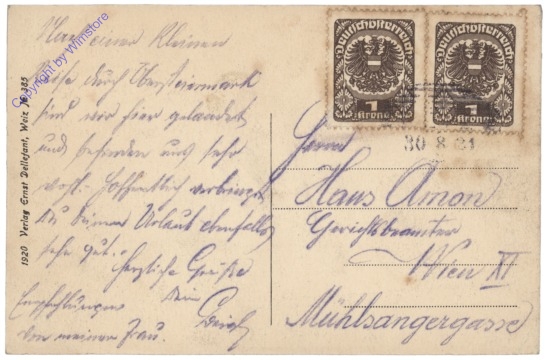 Nach einer kleinen
Reise durch Obersteiermark
sind wir hier gelandet
und befinden uns sehr
wohl. Hoffentlich verbringst
Du deinen Urlaub ebenfalls
sehr gut.
Herzliche Grüße
Dein
Empfehlungen
von meiner Frau.
Copyright by Wimstore
1920 Verlag Ernst Dellefant, Weiz № 385
Deutschösterreich
1
Krone
Deutschösterreich
1
Krone
30 8 21
Herrn
Hans Amon
Gerichtsbeamter
Wien XI
Mühlsangergasse